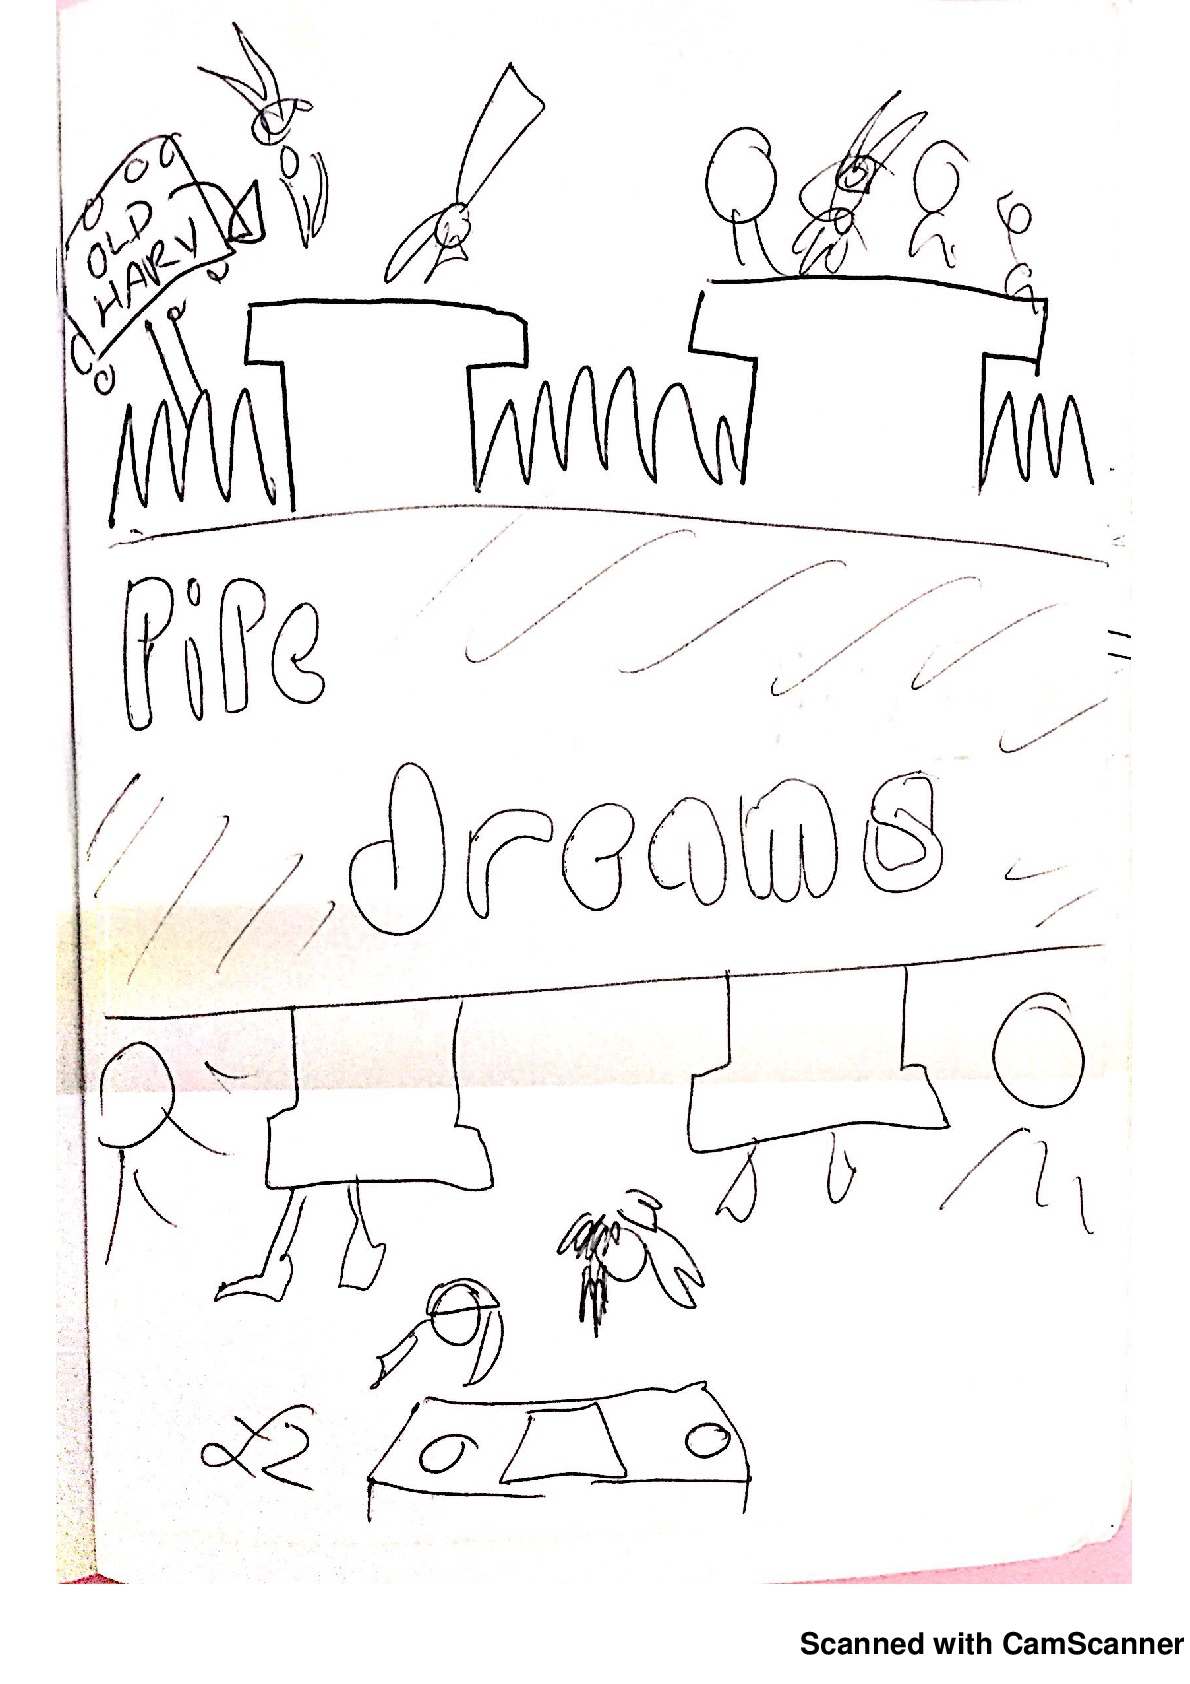 OLD
HARY
PiPe
dreams
£2
Scanned with CamScanner